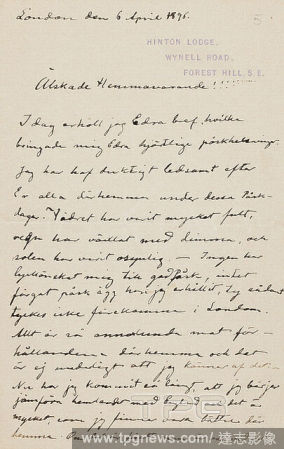 London den 6 April 1896.
5
HINTON LODGE,
WYNELL ROAD,
FOREST HILL, S.E.
Älskade Hemmavarande!!!!!
I dag erhöll jag Edra bref, hvilka
bringade mig Edra hjärtliga påskhelsningar.
Jag har haf duktigt ledsamt efter
Er alla därhemma under dessa Påsk-
dagar. Vädret har varit mycket fult,
har växlat med dimma, och
solen har varit osynlig. — Ingen har
lyckönskat mig till god Påsk, intet
färgat påsk ägg har jag erhållit, ty sådant
tyckes icke förekomma i London.
Allt är så annorlunda mot för-
hållandena därhemma och det
är ej underligt att jag känner af det.
Nu har jag kommit så långt, att jag börjar
jämföra hemlandet med och det är
mycket, som jag finner vara bättre där
hemma.
TPG
www.tpgnews.com/達志影像